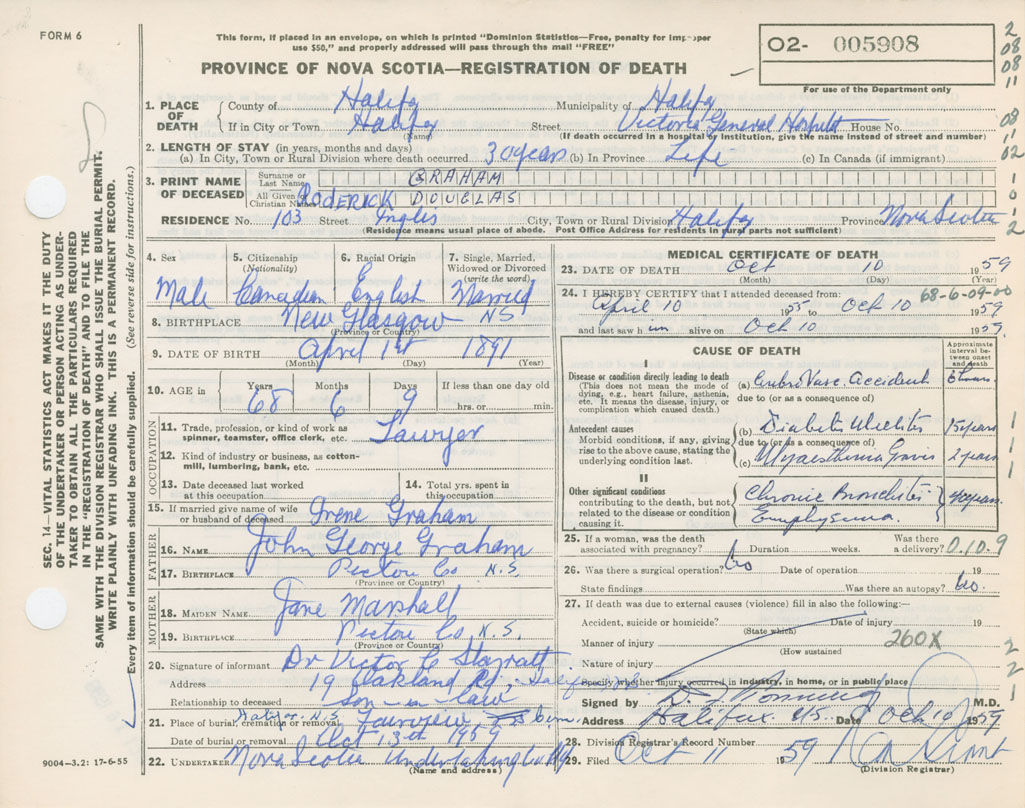 FORM 6
This form, if placed in an envelope, on which is printed "Dominion Statistics—Free, penalty for improper
use $50," and properly addressed will pass through the mail "FREE"
PROVINCE OF NOVA SCOTIA—REGISTRATION OF DEATH
O2- 005908
For use of the Department only
2
08
08
11
08
11
02
1
0
1
2
1. PLACE OF DEATH County of Halifax Municipality of Halifax
If in City or Town Halifax Street Victoria General Hospital House No.
(Name) (If death occurred in a hospital or institution, give the name instead of street and number)
2. LENGTH OF STAY (in years, months and days)
(a) In City, Town or Rural Division where death occurred 30 years (b) In Province Life (c) In Canada (if immigrant)
3. PRINT NAME OF DECEASED Surname or Last Name GRAHAM
All Given Christian Names RODERICK DOUGLAS
RESIDENCE No. 103 Street Inglis City, Town or Rural Division Halifax Province Nova Scotia
(Residence means usual place of abode. Post Office Address for residents in rural parts not sufficient)
4. Sex 5. Citizenship (Nationality) 6. Racial Origin 7. Single, Married, Widowed or Divorced (write the word)
Male Canadian English Married
8. BIRTHPLACE New Glasgow NS
(Province or Country)
9. DATE OF BIRTH April 1st 1891
(Month) (Day) (Year)
10. AGE in Years Months Days If less than one day old
68 6 9 hrs. or min.
OCCUPATION
11. Trade, profession, or kind of work as spinner, teamster, office clerk, etc. Lawyer
12. Kind of industry or business, as cotton-mill, lumbering, bank, etc.
13. Date deceased last worked at this occupation
14. Total yrs. spent in this occupation
15. If married give name of wife or husband of deceased Irene Graham
FATHER
16. NAME John George Graham
17. BIRTHPLACE Pictou Co N.S.
(Province or Country)
MOTHER
18. MAIDEN NAME Jane Marshall
19. BIRTHPLACE Pictou Co, N.S.
(Province or Country)
20. Signature of informant Dr Victor C Starratt
Address 19 Oakland Rd, Halifax
Relationship to deceased Son-in-law
21. Place of burial, cremation or removal Halifax N.S. Fairview
Date of burial or removal Oct 13th 1959
22. UNDERTAKER Nova Scotia Undertaking Co
(Name and address)
9004-3.2: 17-6-55
MEDICAL CERTIFICATE OF DEATH
23. DATE OF DEATH Oct 10 1959
(Month) (Day) (Year)
24. I HEREBY CERTIFY that I attended deceased from: 68-6-09-00
April 10 1955 to Oct 10 1959
and last saw him alive on Oct 10 1959
CAUSE OF DEATH
Approximate interval between onset and death
I
Disease or condition directly leading to death
(This does not mean the mode of dying, e.g., heart failure, asthenia, etc. It means the disease, injury, or complication which caused death.)
(a) Cerebro Vasc. Accident 6 hours
due to (or as a consequence of)
Antecedent causes
Morbid conditions, if any, giving rise to the above cause, stating the underlying condition last.
(b) Diabetes Mellitus 15 years
due to (or as a consequence of)
(c) Myaesthenia Gravis 2 years
II
Other significant conditions
contributing to the death, but not related to the disease or condition causing it.
Chronic Bronchitis 40 years
Emphysema.
1
1
1
1
25. If a woman, was the death associated with pregnancy? Duration weeks. Was there a delivery? 0.10.9
26. Was there a surgical operation? No Date of operation 19
State findings Was there an autopsy? No.
27. If death was due to external causes (violence) fill in also the following:—
Accident, suicide or homicide? Date of injury 19
(State which)
Manner of injury 260X
(How sustained
Nature of injury
Specify whether injury occurred in industry, in home, or in public place
2
2
1
Signed by M.D.
Address Halifax N.S. Date Oct 10 1959
28. Division Registrar's Record Number
29. Filed Oct 11 1959
(Division Registrar)
SEC. 14—VITAL STATISTICS ACT MAKES IT THE DUTY
OF THE UNDERTAKER OR PERSON ACTING AS UNDER-
TAKER TO OBTAIN ALL THE PARTICULARS REQUIRED
IN THE "REGISTRATION OF DEATH" AND TO FILE THE
SAME WITH THE DIVISION REGISTRAR WHO SHALL ISSUE THE BURIAL PERMIT.
WRITE PLAINLY WITH UNFADING INK. THIS IS A PERMANENT RECORD.
Every item of information should be carefully supplied. (See reverse side for instructions.)